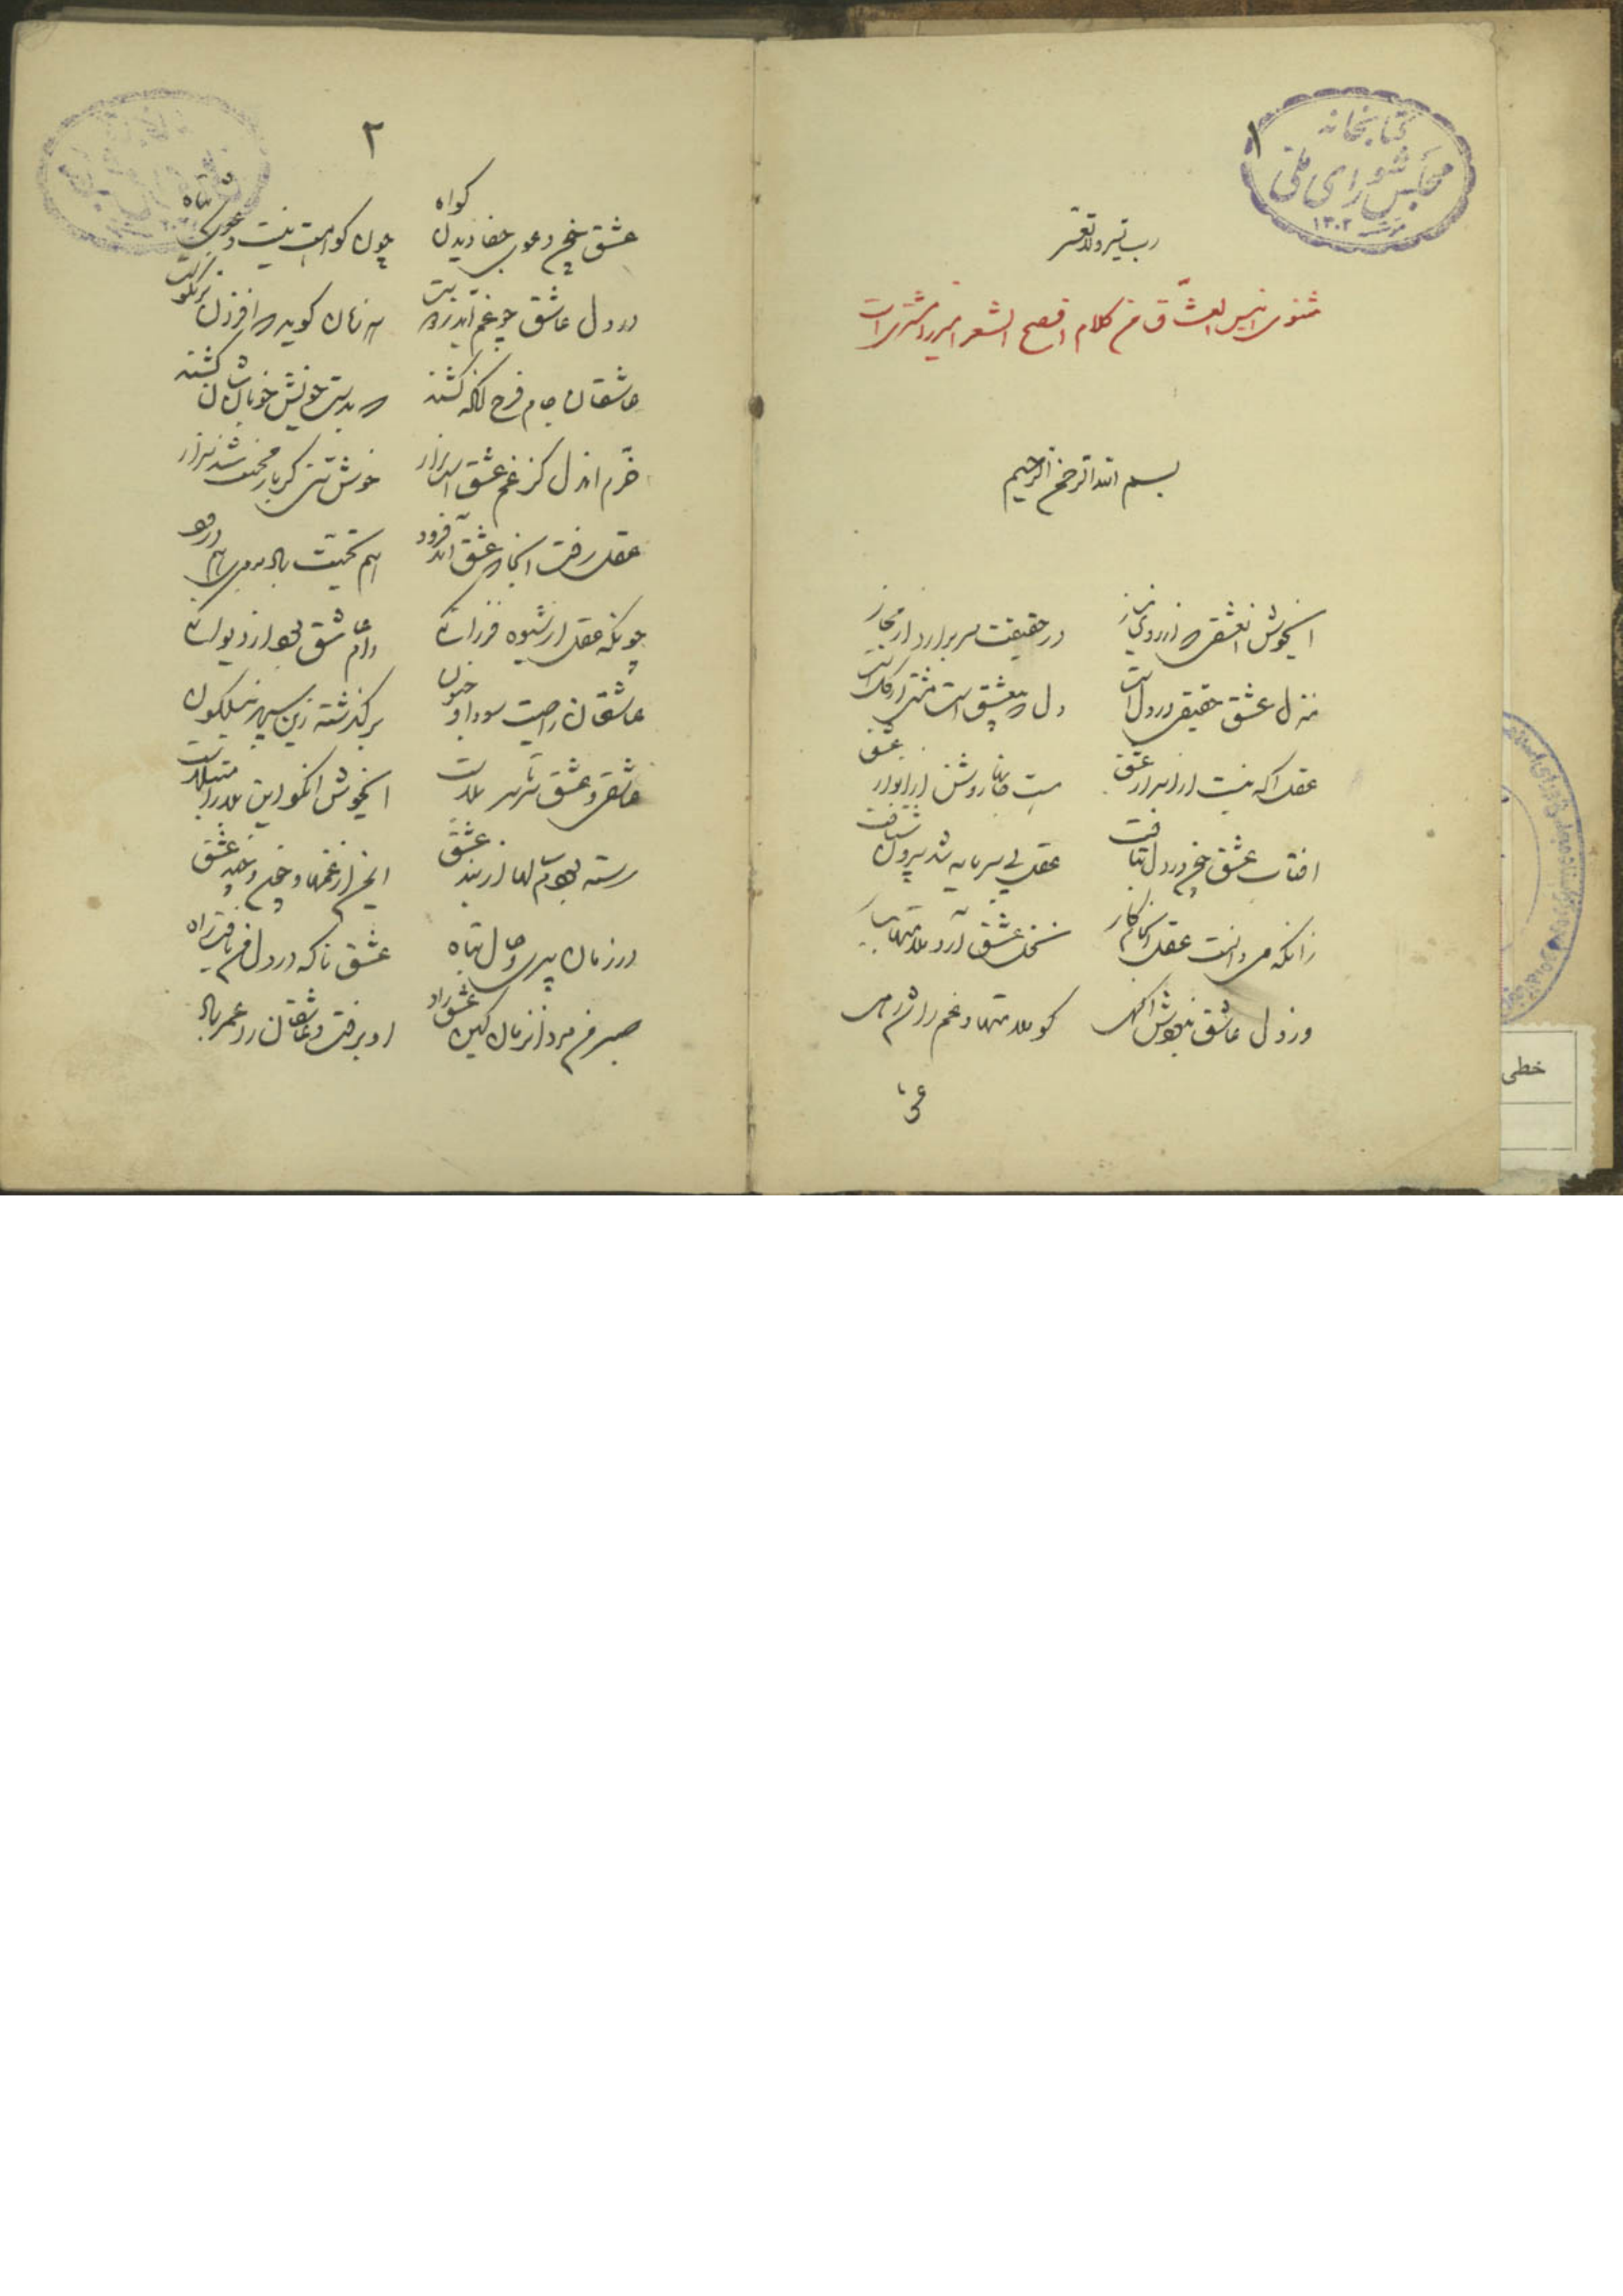 ۱
کتابخانه
مجلس شورای ملی
۱۳۰۲
رب یسر ولا تعسر
مثنوی انیس العشاق من کلام افصح الشعرا میرزا
بسم الله الرحمن الرحیم
ایخوش انعشقی که از روی نیاز
در حقیقت سر برارد از مجاز
منزل عشق حقیقی در دل است
دل که بیعشق است مشتی از گل است
عقل اگه نیست از اسرار عشق
هست جانها روشن از انوار عشق
افتاب عشق چون در دل بتافت
عقل بی سرمایه شد بیرون شتافت
زانکه می دانست عقل انجام کار
نخل عشق آرد ملامتها ببار
وز دل عاشق نبودش اگهی
کو ملامتها و غم را شد رهی
۲
عشق چون دعوی جفا دیدن گواه
چون گواهت نیست دعوی شد تباه
در دل عاشق چو غم آید
هر زمان گوید که افزون
عاشقان جام فرح انگه کشند
که بدست خویش خوبانشان کشند
خرم اندل کز غم عشق است زار
خوش تنی کز بار محنت شد نزار
عقل رفت انجا که عشق آمد فرود
چونکه عقل از شیوه فرزانگی
دام عاشق بود از دیوانگی
عاشقان راصیت سودا و جنون
برگذشته زین سپهر نیلگون
عاشقی و عشق سرتاسر بلاست
ایخوش انکو این بلا را مبتلاست
رسته بودم سالها از بند عشق
ایمن از غمها و چون و چند عشق
در زمان پیری و حال تباه
عشق ناگه در دل من یافت راه
صبر من مرد انزمان کین عشق زاد
او برفت و عاشقان را عمر باد
خطی